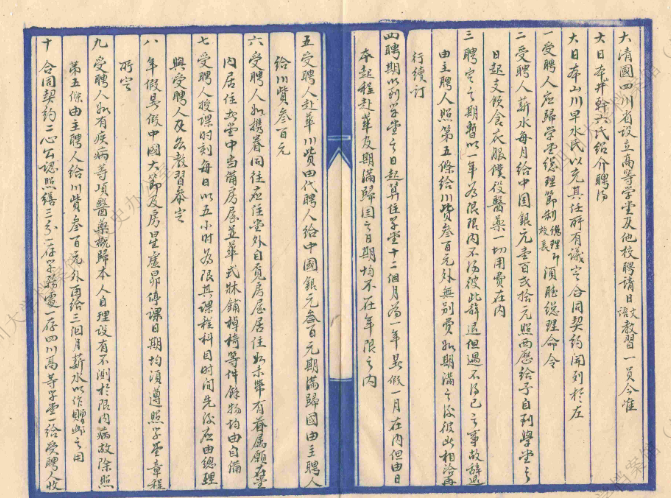 大清國四川省設立高等學堂及他校聘請日語文教習一員今准
大日本井幹六氏紹介聘得
大日本山川早水氏以充其任所有議定合同契約開列於左
一受聘人應歸學堂總理節制總理即校長須聽總理命令
二受聘人薪水每月給中國銀元壹百貳拾元照西曆給予自到學堂之
日起支領食衣服僕役醫藥一切用費在內
三聘定之期暫以一年為限限內不得彼此辭退但遇不得已之事故辭退
由主聘人照第五條給川貲叁百元外無别費如期滿之後彼此相洽再
行續訂
四聘期以到學堂之日起算住學堂十二個月為一年暑假一月在內但由日
本起程赴華及期滿歸國之日期均不在年限之內
五受聘人赴華川貲由代聘人給中國銀元叁百元期滿歸國由主聘人
給川貲叁百元
六受聘人如携眷同往應住堂外自覓房屋居住如未帶有眷屬願在堂
內居住或堂中當備房屋並華式牀鋪桌椅等件餘物均由自備
七受聘人授課時刻每日以五小時為限其課程科目時間先後應由總理
與受聘人及各教習參定
八年假暑假中國大節及房星虛昴停課日期均須遵照學堂章程
所定
九受聘人如有疾病等項醫藥概歸本人自理設有不測於限內病故除照
第五條由主聘人給川貲叁百元外再給三個月薪水以作賻卹之用
十合同契約二心公認照繕三分一存學務處一存四川高等學堂一給受聘人收